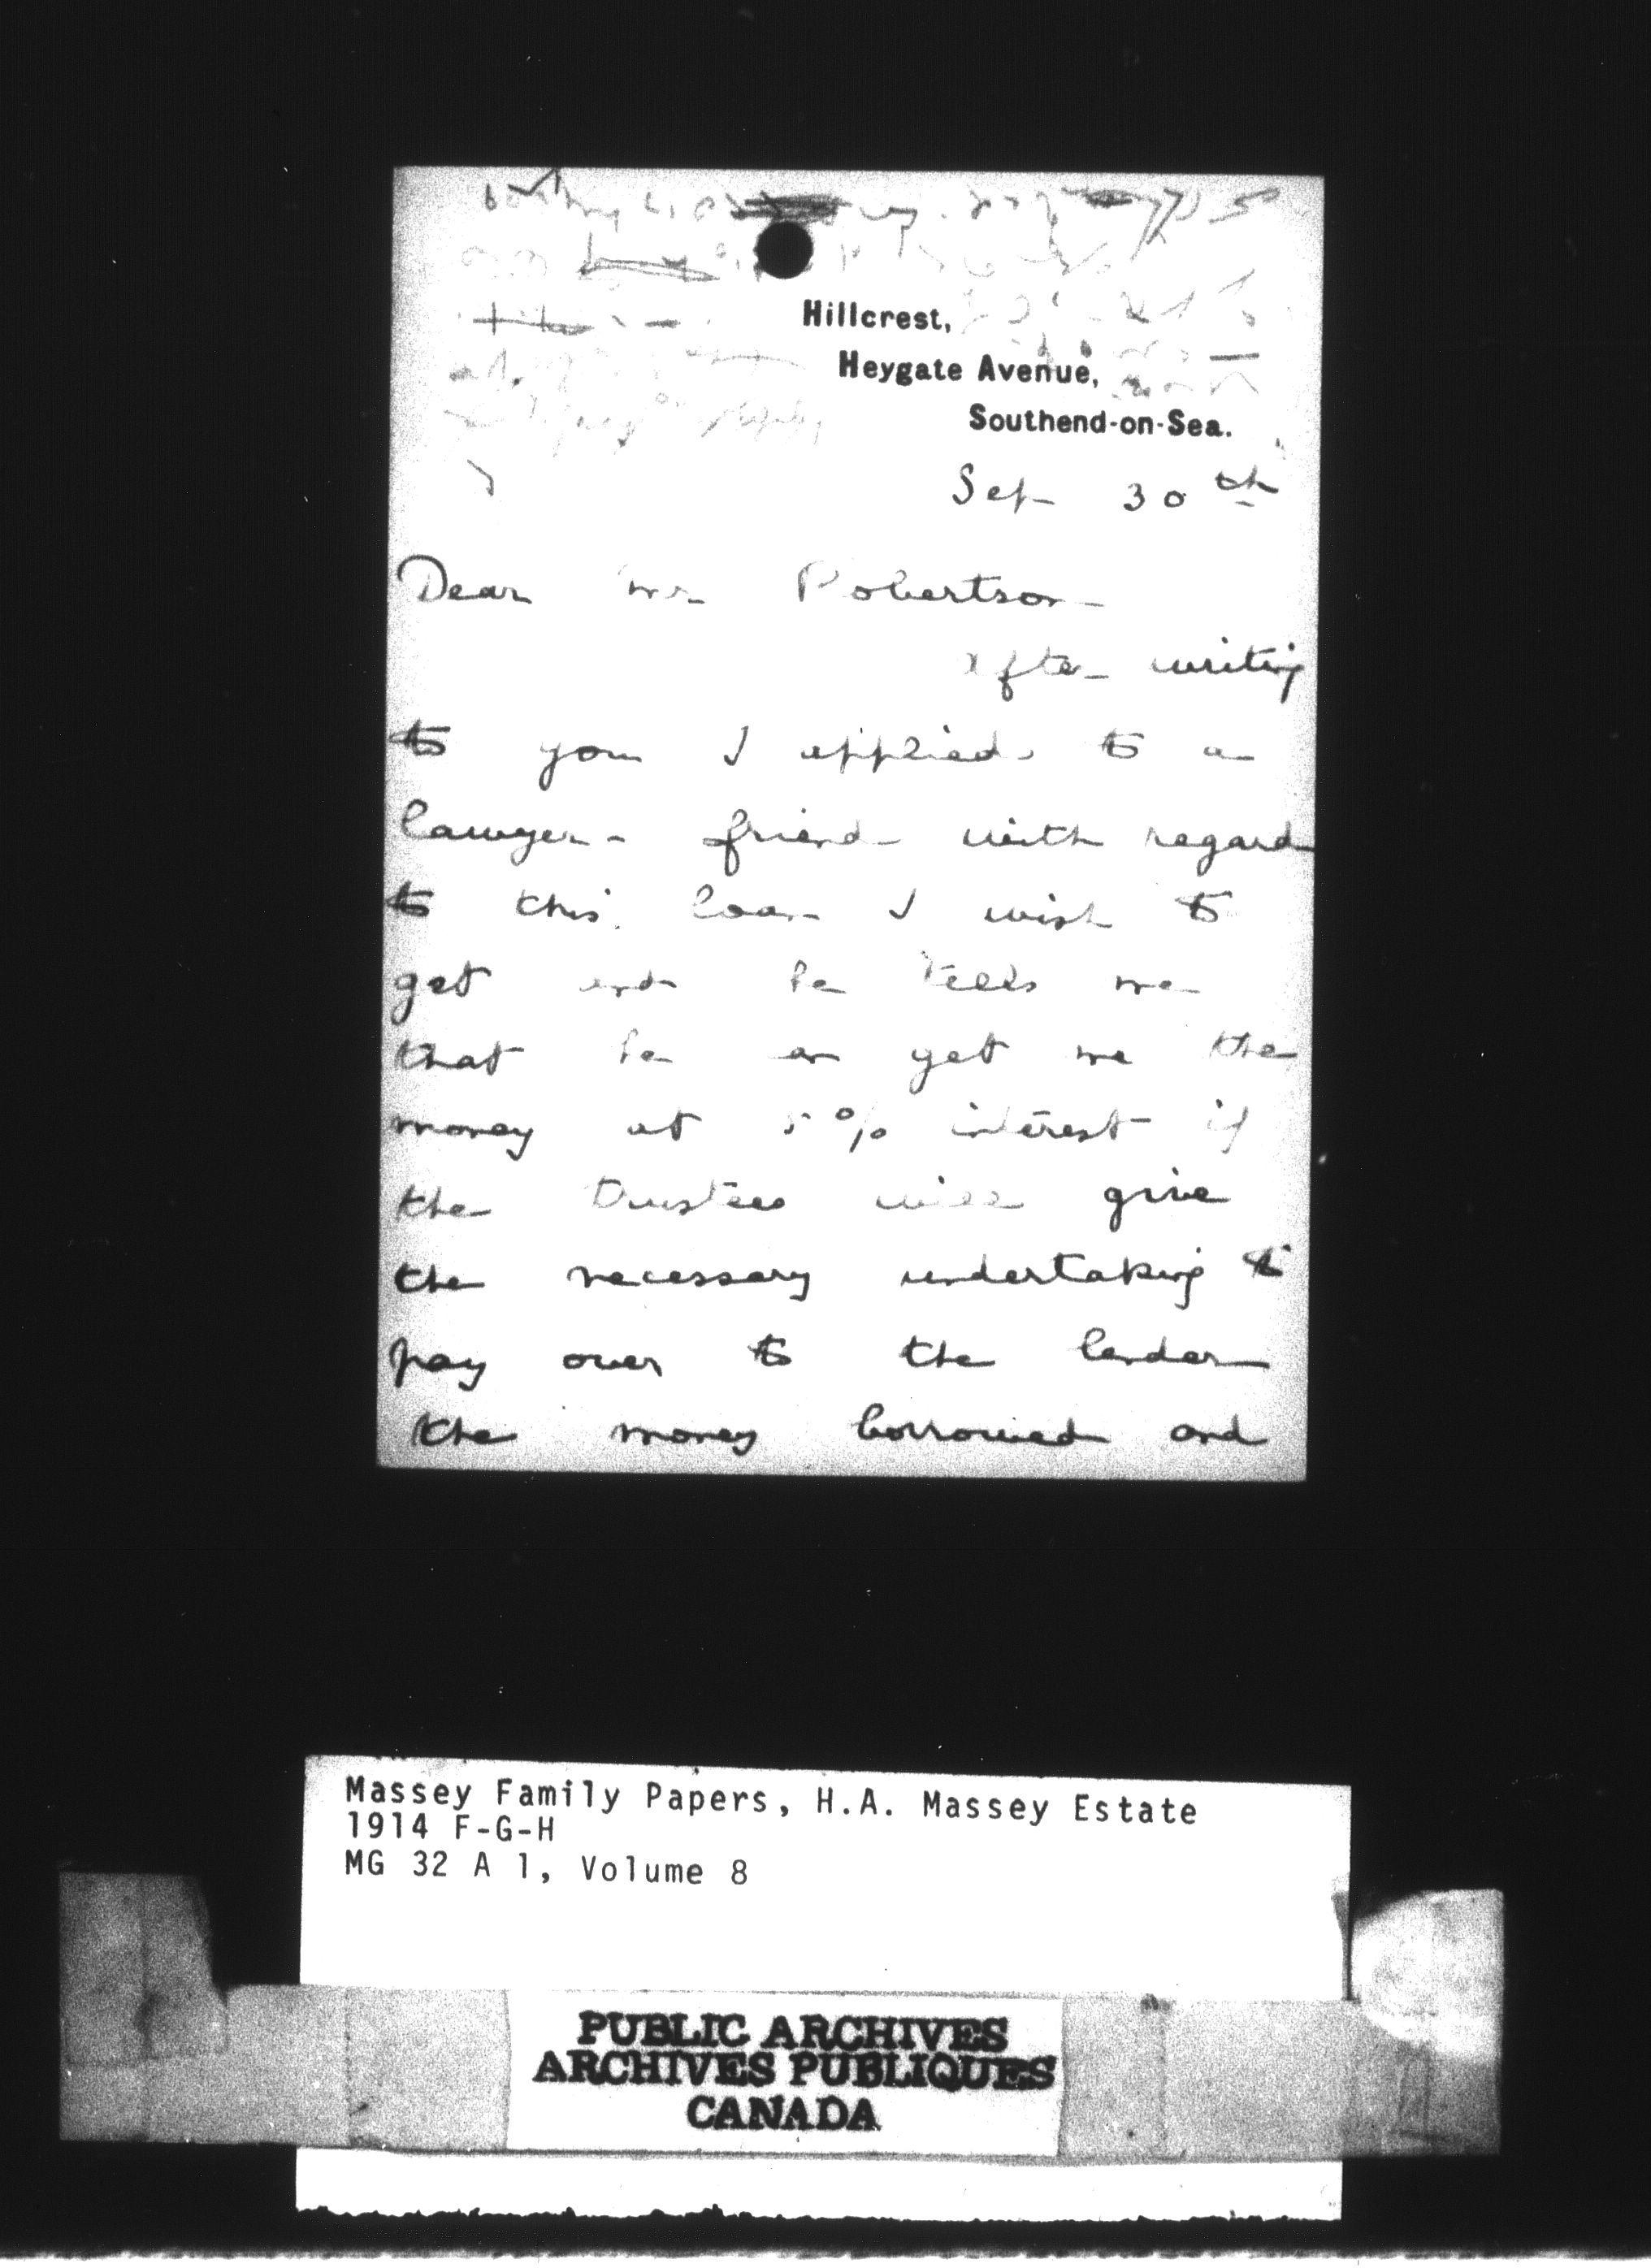 Hillcrest,
Heygate Avenue,
Southend-on-Sea.
Sep 30th
Dear Mr Robertson
After writing
to you I applied to a
lawyer friend with regard
to this loan I wish to
get and he tells me
that he can get me the
money at 5% interest if
the trustees will give
the necessary undertaking to
pay over to the lender
the money borrowed and
Massey Family Papers, H.A. Massey Estate
1914 F-G-H
MG 32 A 1, Volume 8
PUBLIC ARCHIVES
ARCHIVES PUBLIQUES
CANADA